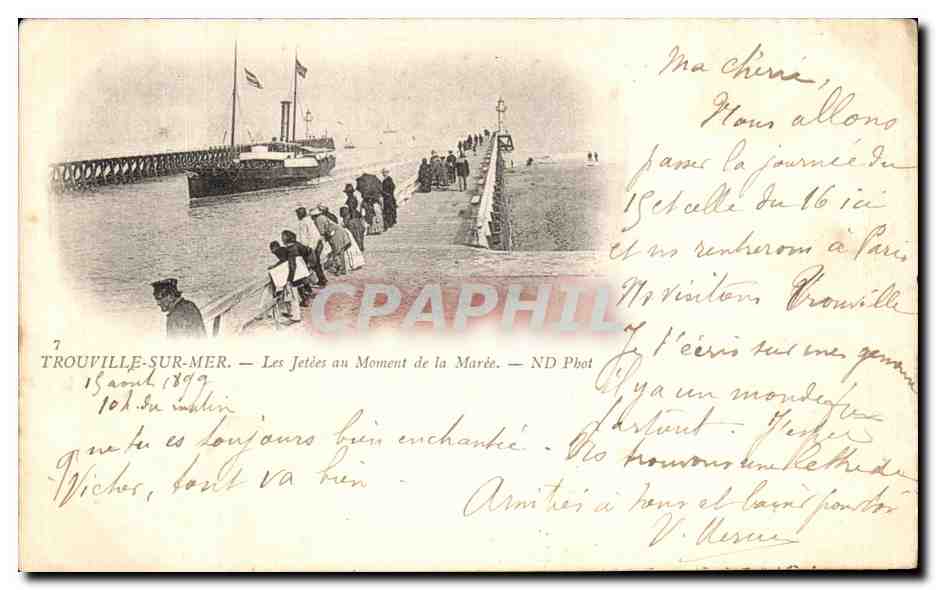 Ma chérie,
Nous allons
passer la journée du
15 et celle du 16 ici
et ns rentrerons à Paris
Ns visitons Trouville
Je t'écris sur mes genoux
il y a un monde fou
partout. J'espère
CPAPHIL
7
TROUVILLE-SUR-MER. — Les Jetées au Moment de la Marée. — ND Phot
15 aout 1899
10h. du matin
que tu es toujours bien enchantée. Ns trouvons une lettre de
Vicher, tout va bien.
Amitiés à tous et baisé pour toi
V.